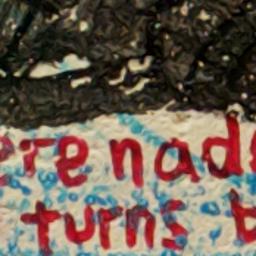 erenad
turns b